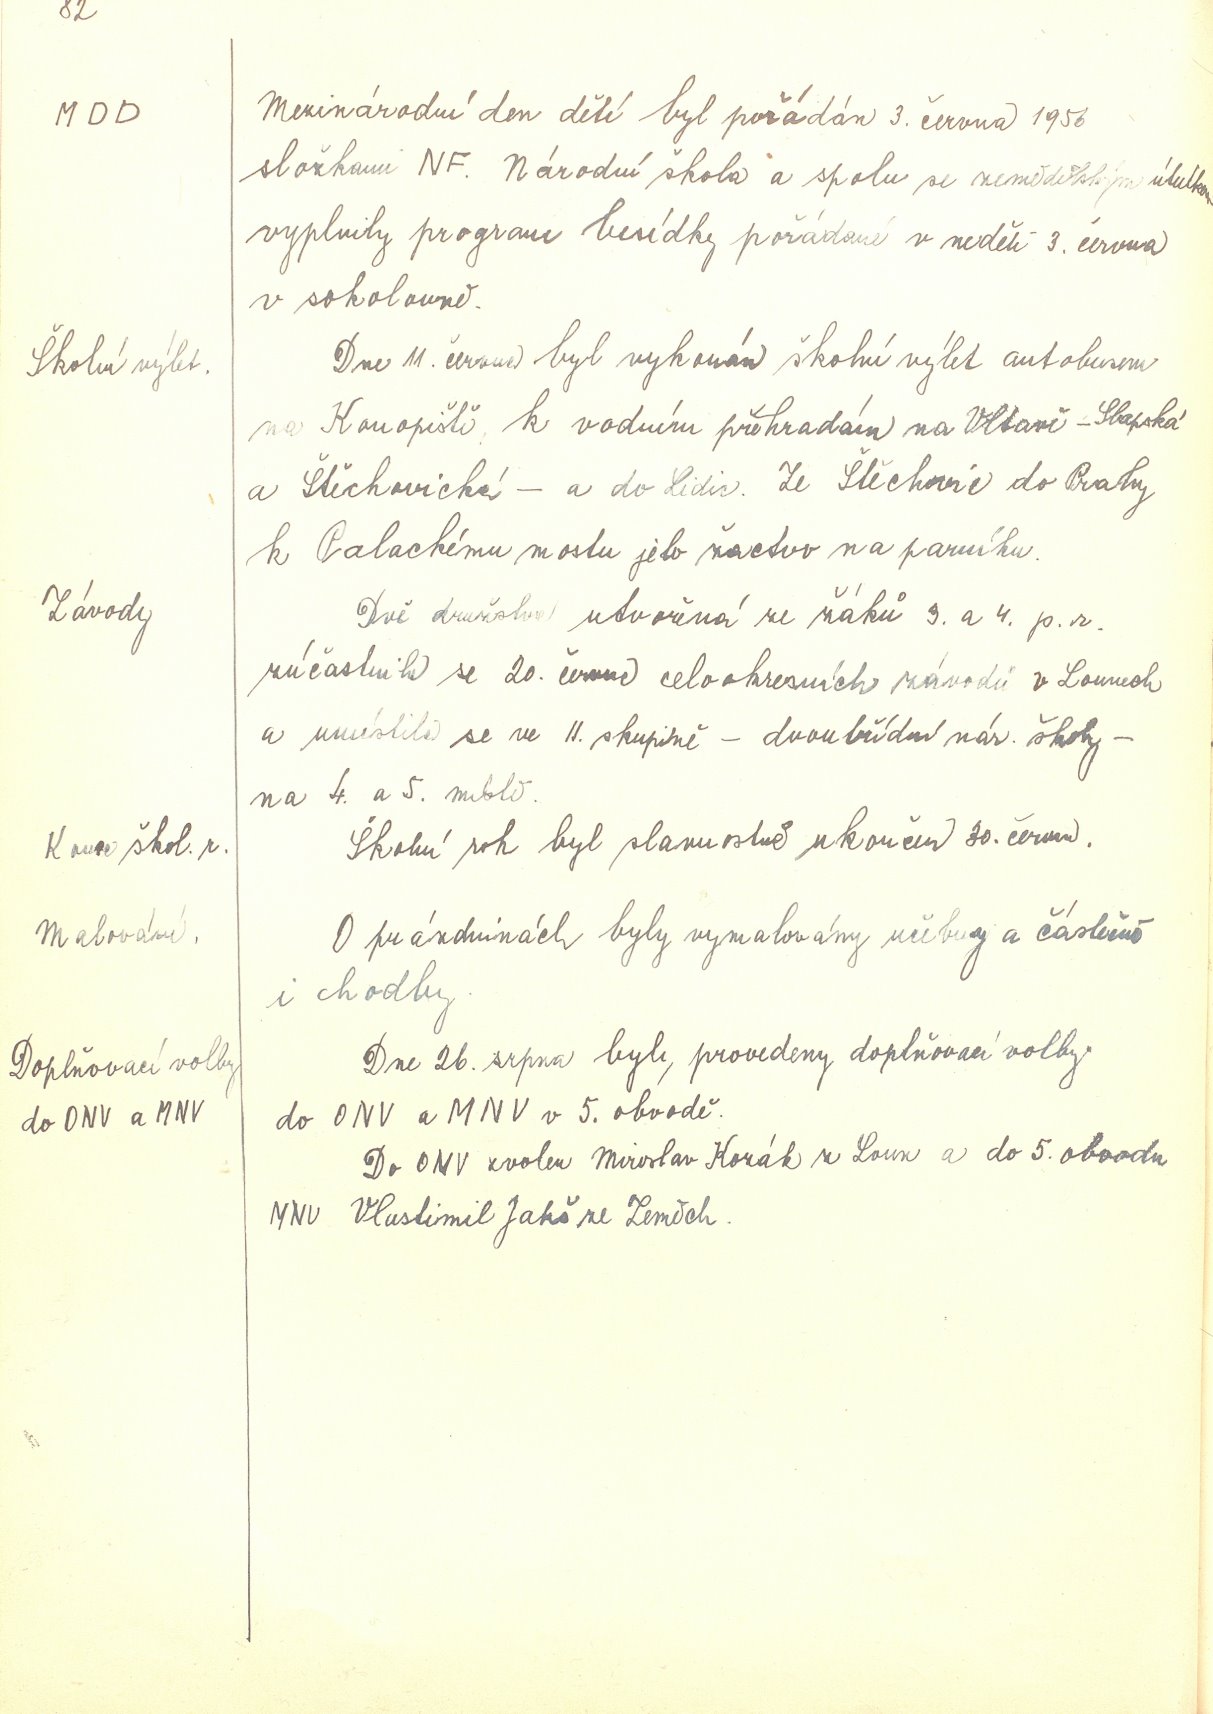 82
MDD
Mezinárodní den dětí byl pořádán 3. června 1956
složkami NF. Národní škola a spolu se zemědělským útulkem
vyplnily program besídky pořádané v neděli 3. června
v sokolovně.
Školní výlet.
Dne 11. června byl vykonán školní výlet autobusem
na Konopiště, k vodním přehradám na Vltavě – Slapská
a Štěchovická – a do Lidic. Ze Štěchovic do Prahy
k Palackému mostu jelo žactvo na parníku.
Závody
Dvě družstva utvořená ze žáků 3. a 4. p. r.
zúčastnila se 20. června celookresních závodů v Lounech
a umístila se ve II. skupině – dvoutřídní nár. školy –
na 4. a 5. místě.
Konec škol. r.
Školní rok byl slavnostně ukončen 30. června.
Malování.
O prázdninách byly vymalovány učebny a částečně
i chodby.
Doplňovací volby
do ONV a MNV
Dne 26. srpna byly provedeny doplňovací volby
do ONV a MNV v 5. obvodě.
Do ONV zvolen Miroslav Kozák z Loun a do 5. obvodu
MNV Vlastimil Jakš ze Zeměch.